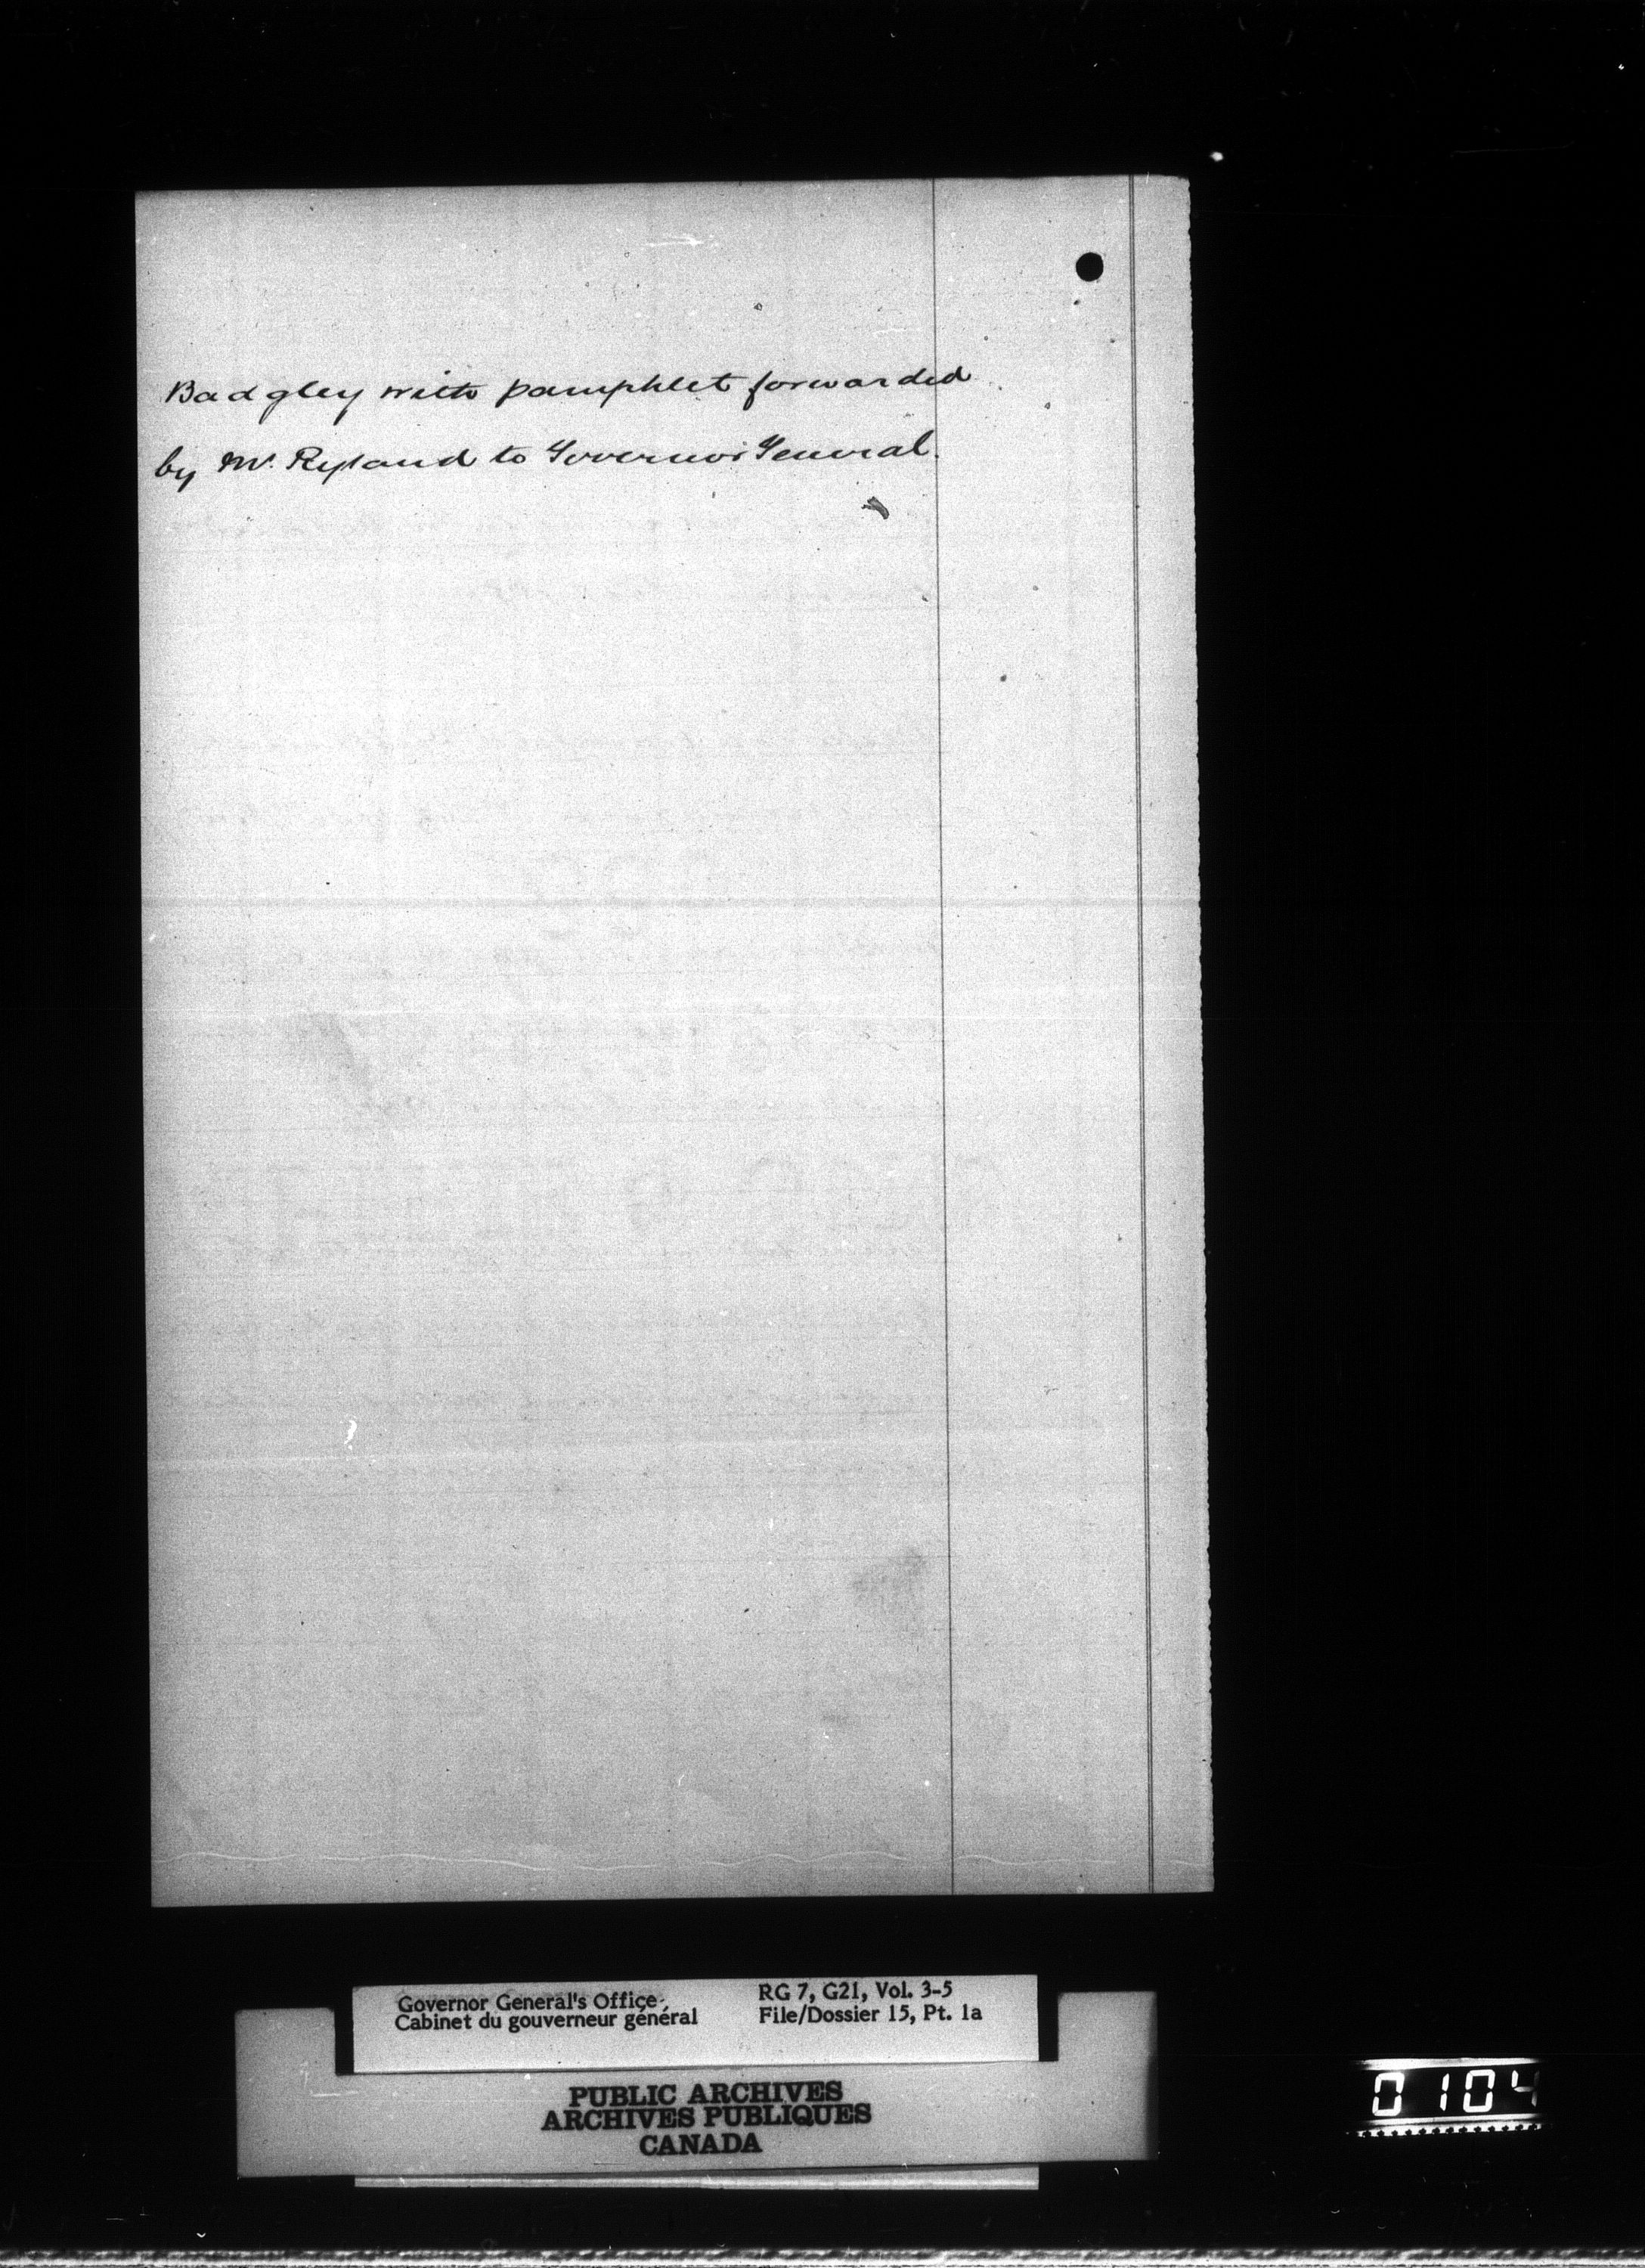 Badgley with pamphlet forwarded
by Mr. Ryland to Governor General.
Governor General's Office
Cabinet du gouverneur général
RG 7, G21, Vol. 3-5
File/Dossier 15, Pt. 1a
PUBLIC ARCHIVES
ARCHIVES PUBLIQUES
CANADA
0104